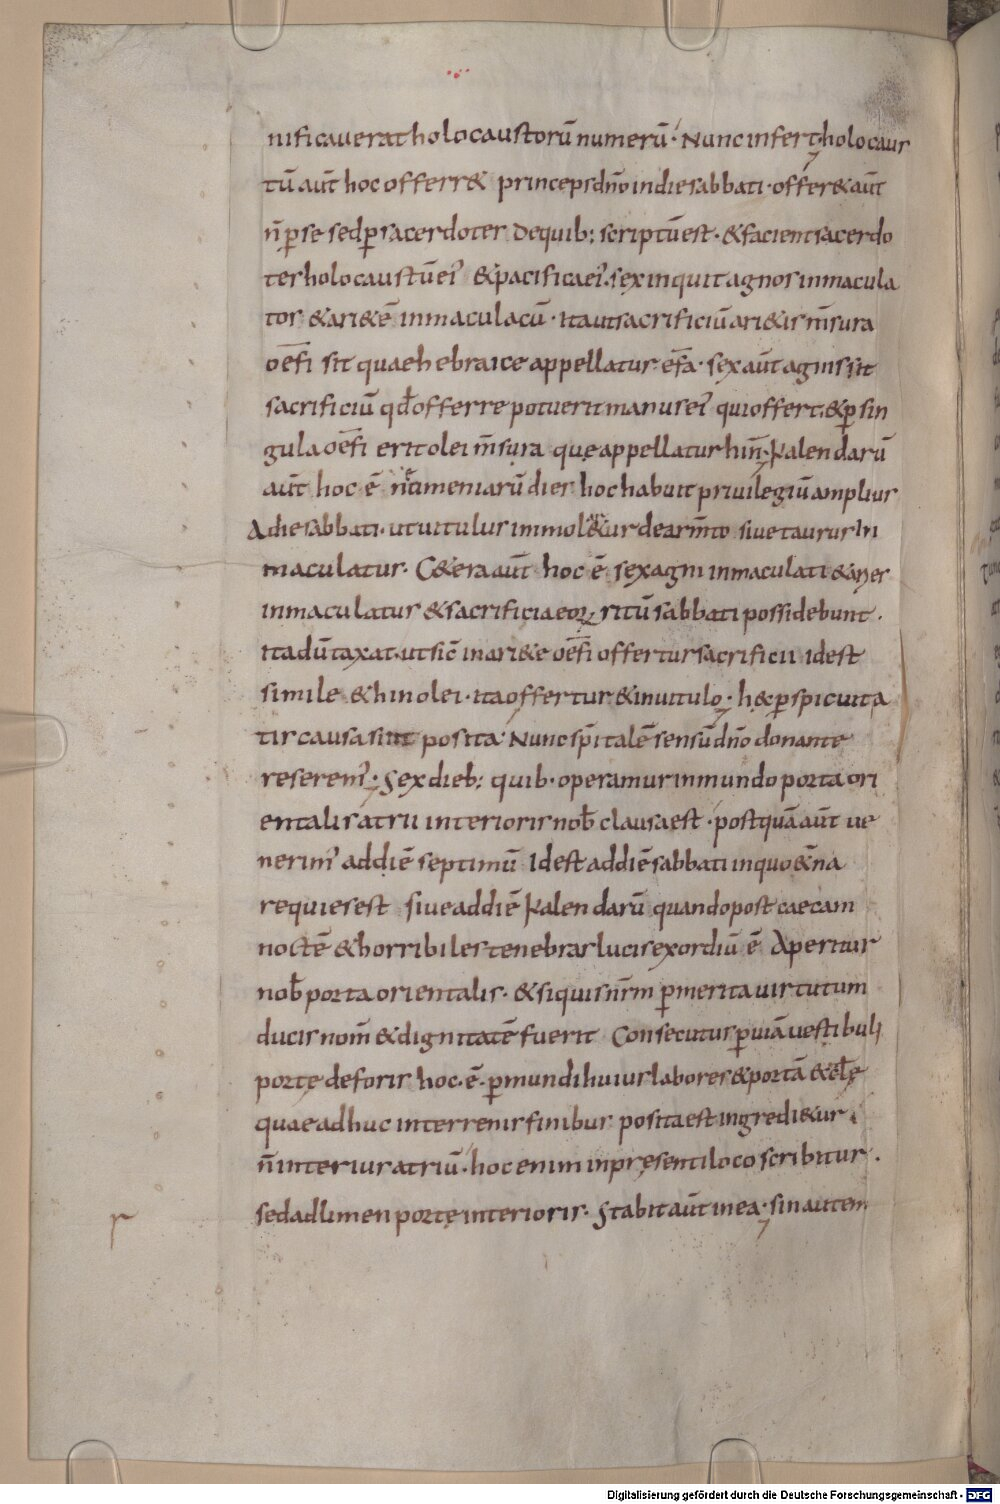 nificauerat holocaustorū numerū. Nunc infert holocaus
tū aūt hoc offerr& princeps dn̄o in die sabbati. offer& aūt
n̄ p̱ se sed p̱ sacerdotes De quib; scriptū est. & facient sacerdo
tes holocaustū ei' & pacifica ei'. sex inquit agnos inmacula
tos & ari&ē inmaculatū. ita ut sacrificiū ari&is m̄sura
oēfi sit quae hebraice appellatur ēfa. sex aūt agnis sit
sacrificiū qđ offerre potuerit manus ei' qui offert. & p̱ sin
gula oēfi erit olei m̄sura quę appellatur hin. Kalendarū
aūt hoc ē neomeniarū dies hoc habuit priuilegiū amplius
A die sabbati. ut uitulus immol&ur de arm̄to siue taurus In
maculatus. C&era aūt hoc ē sex agni inmaculati & aries
inmaculatus & sacrificia eoꝝ ritū sabbati possidebunt.
Ita dūtaxat. ut sic̄ in ari&e oēfi offertur sacrificii idest
simile & hin olei. ita offertur & in uitulo. hęc p̱spicuita
tis causa sint posita. Nunc sp̄italē sensū dn̄o donante
reserem'. Sex dieb; quib. operamur in mundo porta ori
entalis atrii interioris nob̄ clausa est. postquā aūt ue
nerim' ad diē septimū Idest ad diē sabbati in quo &̄na
requies est siue ad diē Kalendarū quando post caecam
noctē & horribiles tenebras lucis exordiū ē Aperitur
nob̄ porta orientalis. & siquis nr̄m p̱ merita uirtutum
ducis nom̄ & dignitatē fuerit Consecutus p̱ uiā uestibuli
portę deforis hoc. ē. p̱ mundi huius labores & portā & ec̄lę
quae adhuc in terrenis finibus posita est ingredi&ur.
n̄ interius atriū. hoc enim in pręsenti loco scribitur.
sed ad limen portę interioris. Stabit aūt in ea. sin autem
Digitalisierung gefördert durch die Deutsche Forschungsgemeinschaft - DFG